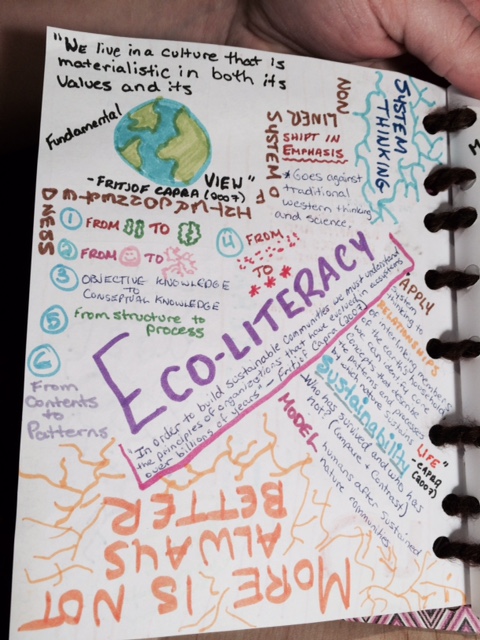 "WE live in a culture that is
materialistic in both its
values and its
Fundamental
VIEW"
- FRITJOF CAPRA (2007)
NON
LINER
SYSTEM OF
SYSTEM
THINKING
SHIFT IN
EMPHASIS
* Goes against
traditional
western thinking
and science.
DNESS
① FROM TO
② FROM TO
③ OBJECTIVE KNOWLEDGE
TO
CONSEPTUAL KNOWLEDGE
④ FROM
TO
⑤ From structure to
process
⑥
From
Contents
to
Patterns
ECO-LITERACY
"In order to build sustainable communities we must understand
the principles of organizations that have evolved in ecosystems
over billions of years" - Fritjof Capra (2007)
"APPLY
system
thinking to
RELATIONSHIPS
of interlinking members
of the earth's household
we can identify core
concepts that describe
the patterns and processes
which nature sustains
LIFE"
- CAPRA
(2007)
Sustainability
MODEL
- Who has survived and who has
not? (compare + contrast)
humans after sustained
nature communities
MORE IS NOT
ALWAYS
BETTER